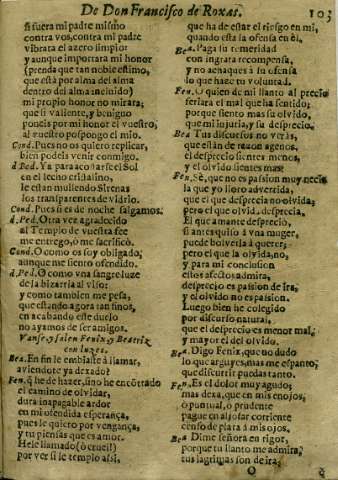 De Don Francisco de Roxas.
103
si fuera mi padre mismo
contra vos, contra mi padre
vibrara el azero limpio
y aunque importara mi honor
(prenda que tan noble estimo,
que està por alma del alma
dentro del alma incluido)
mi propio honor no mirara;
que si valiente, y benigno
poneis por mi honor el vuestro,
al vuestro pospongo el mio.
Cond. Pues no os quiero replicar,
bien podeis venir conmigo.
d Ped. Ya para acostarse el Sol
en el lecho cristalino,
le estan mullendo Sirenas
los transparentes de vidrio.
Cond. Pues si es de noche salgamos.
d. Ped. Otra vez agradecido
al Templo de vuestra fee
me entrego, ò me sacrifico.
Cond. O como os soy obligado,
aunque me siento ofendido.
d. Ped. O como vna sangre luze
de la bizarria al viso:
y como tambien me pesa,
que estando agora tan finos,
en acabando este duelo
no ayamos de ser amigos.
Vanse, y salen Fenix, y Beatriz
con luzes.
Bea. En fin le embiaste à llamar,
aviendote ya dexado?
Fen. q he de hazer, sino he encõtrado
el camino de olvidar,
dura inapagable ardor
en mi ofendida esperança,
pues le quiero por vengança,
y tu piensas que es amor.
Hele llamado (ò cruel!)
por ver si le templo assi,
que ha de estar el riesgo en mi,
quando està la ofensa en èl.
Bea. Paga su temeridad
con ingrata recompensa,
y no achaques à su ofensa
lo que haze tu voluntad.
Fen. O quien de mi llanto al precio
feriara el mal que ha sentido;
porque siento mas su olvido,
que mi injuria, y su desprecio.
Bea Tus discursos no verás,
que estàn de razon agenos,
el desprecio sientes menos,
y el olvido sientes mas.
Fen. Sè, que no es passion muy necia
la que yo lloro advertida,
que el que desprecia no olvida;
pero el que olvida, desprecia.
El que amante desprecio,
si antes quiso à vna muger,
puede bolverla à querer;
pero el que la olvida, no,
y para mi conclusion
estos afectos admira,
desprecio es passion de ira,
y el olvido no es passion.
Luego bien he colegido
por discurso natural,
que el desprecio es menor mal,
y mayor el del olvido.
Bea. Digo Fenix, que no dudo
lo que arguyes, mas me espanto,
que discurrir puedas tanto.
Fen. Es el dolor muy agudo;
mas dexa, que en mis enojos,
ò puntual, ò prudente
pague en aljofar corriente
censo de plata à mis ojos,
Bea Dime señora en rigor,
porque tu llanto me admira,
tus lagrimas son de ira;
O